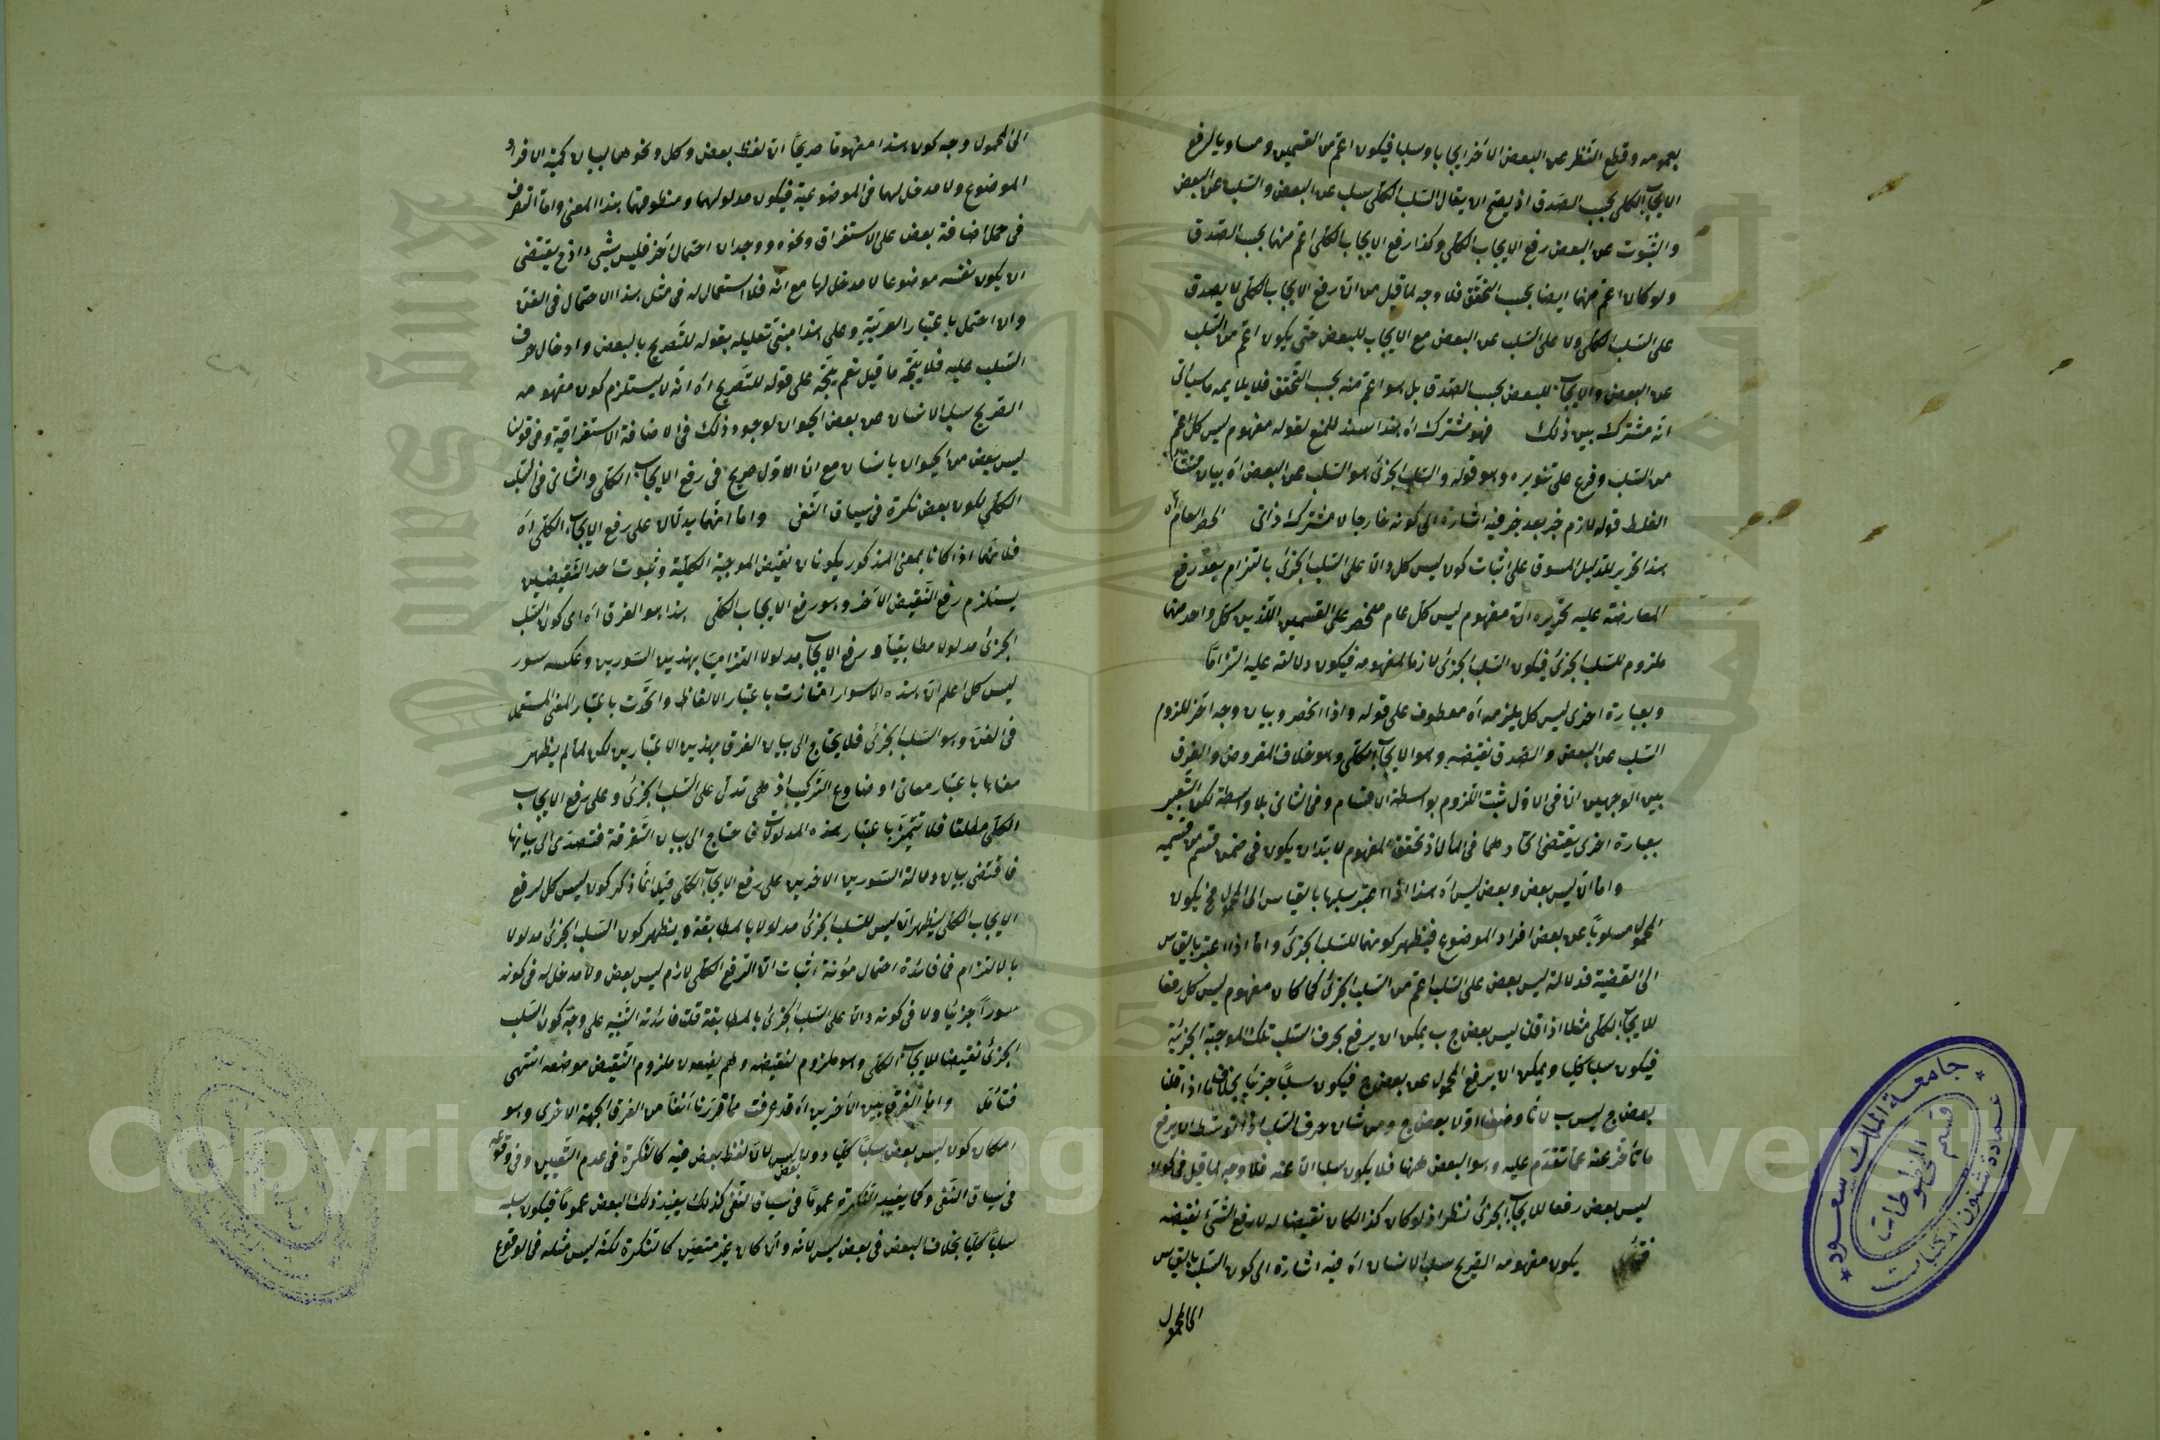 بعمومه وقطع النظر عن البعض الآخر ايجابا وسلبا فيكون اعم من القسمين ومساويا لرفع
الايجاب الكلي بحسب الصدق اذ يصح ان يقال السلب الكلي سلب عن البعض والسلب عن البعض
والثبوت عن البعض رفع الايجاب الكلي وكذا رفع الايجاب الكلي اعم منهما بحسب الصدق
ولو كان اعم منهما ايضا بحسب التحقق فلا وجه لما قيل من ان رفع الايجاب الكلي لا يصدق
على السلب الكلي ولا على السلب عن البعض مع الايجاب للبعض حتى يكون اعم من السلب
عن البعض والايجاب للبعض بحسب الصدق بل هو اعم منه بحسب التحقق فلا يلايمه ما سيأتى
انه مشترك بين ذلك فهو مشترك اه هذا سند للمنع لقوله مفهوم ليس كل اعم
من السلب وفرع على تنويره وهو قوله والسلب الجزئى هو السلب عن البعض اه بيان منشأ
الغلط قوله لازم خبر بعد خبر فيه اشارة الى كونه خارجا لا مشتركا ذاتى الحصر العام اه
هذا تحرير للدليل المسوق على اثبات كون ليس كل دالا على السلب الجزئى بالتزام بعد رفع
المعارضة عليه تحريره ان مفهوم ليس كل عام منحصر على القسمين اللذين كل واحد منهما
ملزوم للسلب الجزئى فيكون السلب الجزئى لازما لمفهومه فيكون دلالته عليه التزاما
وبعبارة اخرى ليس كل يلزمه اه معطوف على قوله واذا انحصر وبيان وجه آخر للزوم
السلب عن البعض والصدق نقيضه وهو الايجاب الكلي وهو خلاف المفروض والفرق
بين الوجهين ان فى الاول ثبت اللزوم بواسطة الاقسام وفى الثانى بلا واسطة لكن التعبير
بعبارة اخرى يقتضى اتحادهما فى المآل اذ تحقق المفهوم لا بد ان يكون فى ضمن قسم من قسميه
واما ان ليس بعض وبعض ليس اه هذا اذا اعتبر سلبها بالقياس الى المحمول فح يكون
المحمول مسلوبا عن بعض افراد الموضوع فيظهر كونهما للسلب الجزئى واما اذا اعتبر بالقياس
الى القضية فدلالة ليس بعض على السلب اعم من السلب الجزئى كما كان مفهوم ليس كل رفعا
للايجاب الكلي مثلا اذا قلنا ليس بعض ج ب يمكن ان يرفع بحرف السلب تلك الموجبة الجزئية
فيكون سلبا كليا ويمكن ان يرفع المحمول عن بعض ج فيكون سلبا جزئيا بخلاف ما اذا قلنا
بعض ج ليس ب لانا وضعنا اولا بعض ج ومن شان حرف السلب اذا توسط ان يرفع
ما تأخر عنه عما تقدم عليه وهو البعض ههنا فلا يكون سلبا الا عنه فلا وجه لما قيل فى كون
ليس بعض رفعا للايجاب الجزئى نظر اذ لو كان كذا لكان نقيضا له لا رفع الشئ نقيضه
فتأمل يكون مفهومه الصريح سلب الانسان اه فيه اشارة الى كون السلب بالقياس
الى المحمول
الى المحمول وجه كون هذا مفهوما صريحا ان لفظ بعض وكل ونحوهما لبيان كمية الافراد
الموضوع ولا مدخل لهما فى الموضوعية فيكون مدلولهما ومنظومتها هذا المعنى واما التعرف
فى حمل اضافة بعض على الاستغراق ونحوه ووجدان احتمال آخر فليس بشئ اذ ح يقتضى
ان يكون نفسه موضوعا لا مدخل لها مع انه فلا استعمال له فى مثل هذا الاحتمال فى الفن
وان احتمل باعتبار العربية وعلى هذا مبنى تعليله بقوله للتصريح بالبعض وادخال حرف
السلب عليه فلا يتجه ما قيل نعم يتجه على قوله للتصريح اه انه لا يستلزم كون مفهومه
الصريح سلب الانسان عن بعض الحيوان لوجود ذلك فى الاضافة الاستغراقية وفى قولنا
ليس بعض من الحيوان بانسان مع ان الاول صريح فى رفع الايجاب الكلي والثانى فى السلب
الكلي لكون بعض نكرة فى سياق النفى واما انهما يدلان على رفع الايجاب الكلي اه
فلانهما اذا كانا بمعنى المذكور يكونان نقيض الموجبة الكلية وثبوت احد النقيضين
يستلزم رفع النقيض الآخر وهو رفع الايجاب الكلي هذا هو الفرق اه اى كون السلب
الجزئى مدلولا مطابقيا ورفع الايجاب مدلولا التزاميا بهذين السورين وعكسه سور
ليس كل اعلم ان هذه الاسوار امتازت باعتبار الالفاظ واتحدت باعتبار المعنى المستعمل
فى الفن وهو السلب الجزئى فلا يحتاج الى بيان الفرق بهذين الاعتبارين لكن لما لم يظهر
معناها باعتبار معانى اوضاع التركيب اذ هى تدل على السلب الجزئى وعلى رفع الايجاب
الكلي مطلقا فلا تتميز باعتبار هذه المدلولات فاحتاج الى بيان التفرقة فتصدى الى بيانها
فاقتضى بيان دلالة السورين الاخيرين على رفع الايجاب الكلي قيل انما ذكر كون ليس كل لرفع
الايجاب الكلي ليظهر ان ليس للسلب الجزئى مدلولا بالمطابقة ويظهر كون السلب الجزئى مدلولا
بالالتزام فما فائدة احتمال مؤنة اثبات ان الرفع الكلي لازم ليس بعض ولا مدخل له فى كونه
سورا جزئيا ولا فى كونه دالا على السلب الجزئى بالمطابقة قلت فائدته التنبيه على وجه كون السلب
الجزئى نقيضا للايجاب الكلي وهو ملزوم لنقيضه وهم يضعون ملزوم النقيض موضعه انتهى
فتأمل واما الفرق بين الاخيرين اه قد عرفت مما قررنا آنفا من الفرق الجهة الاخرى وهو
امكان كون ليس بعض سلبا كليا دون بعض ليس لان لفظ بعض فيه كالنكرة فى عدم التعيين وفى وقوعه
فى سياق النفى وكما يفيد النكرة عموما فى سياق النفى كذلك يفيد ذلك البعض عموما فيكون سلبه
سلبا كليا بخلاف البعض فى بعض ليس لانه وان كان غير متعين كالنكرة لكنه ليس مثله فى الوقوع
جامعة الملك سعود
عمادة شئون المكتبات
قسم المخطوطات
Copyright © King Saud University